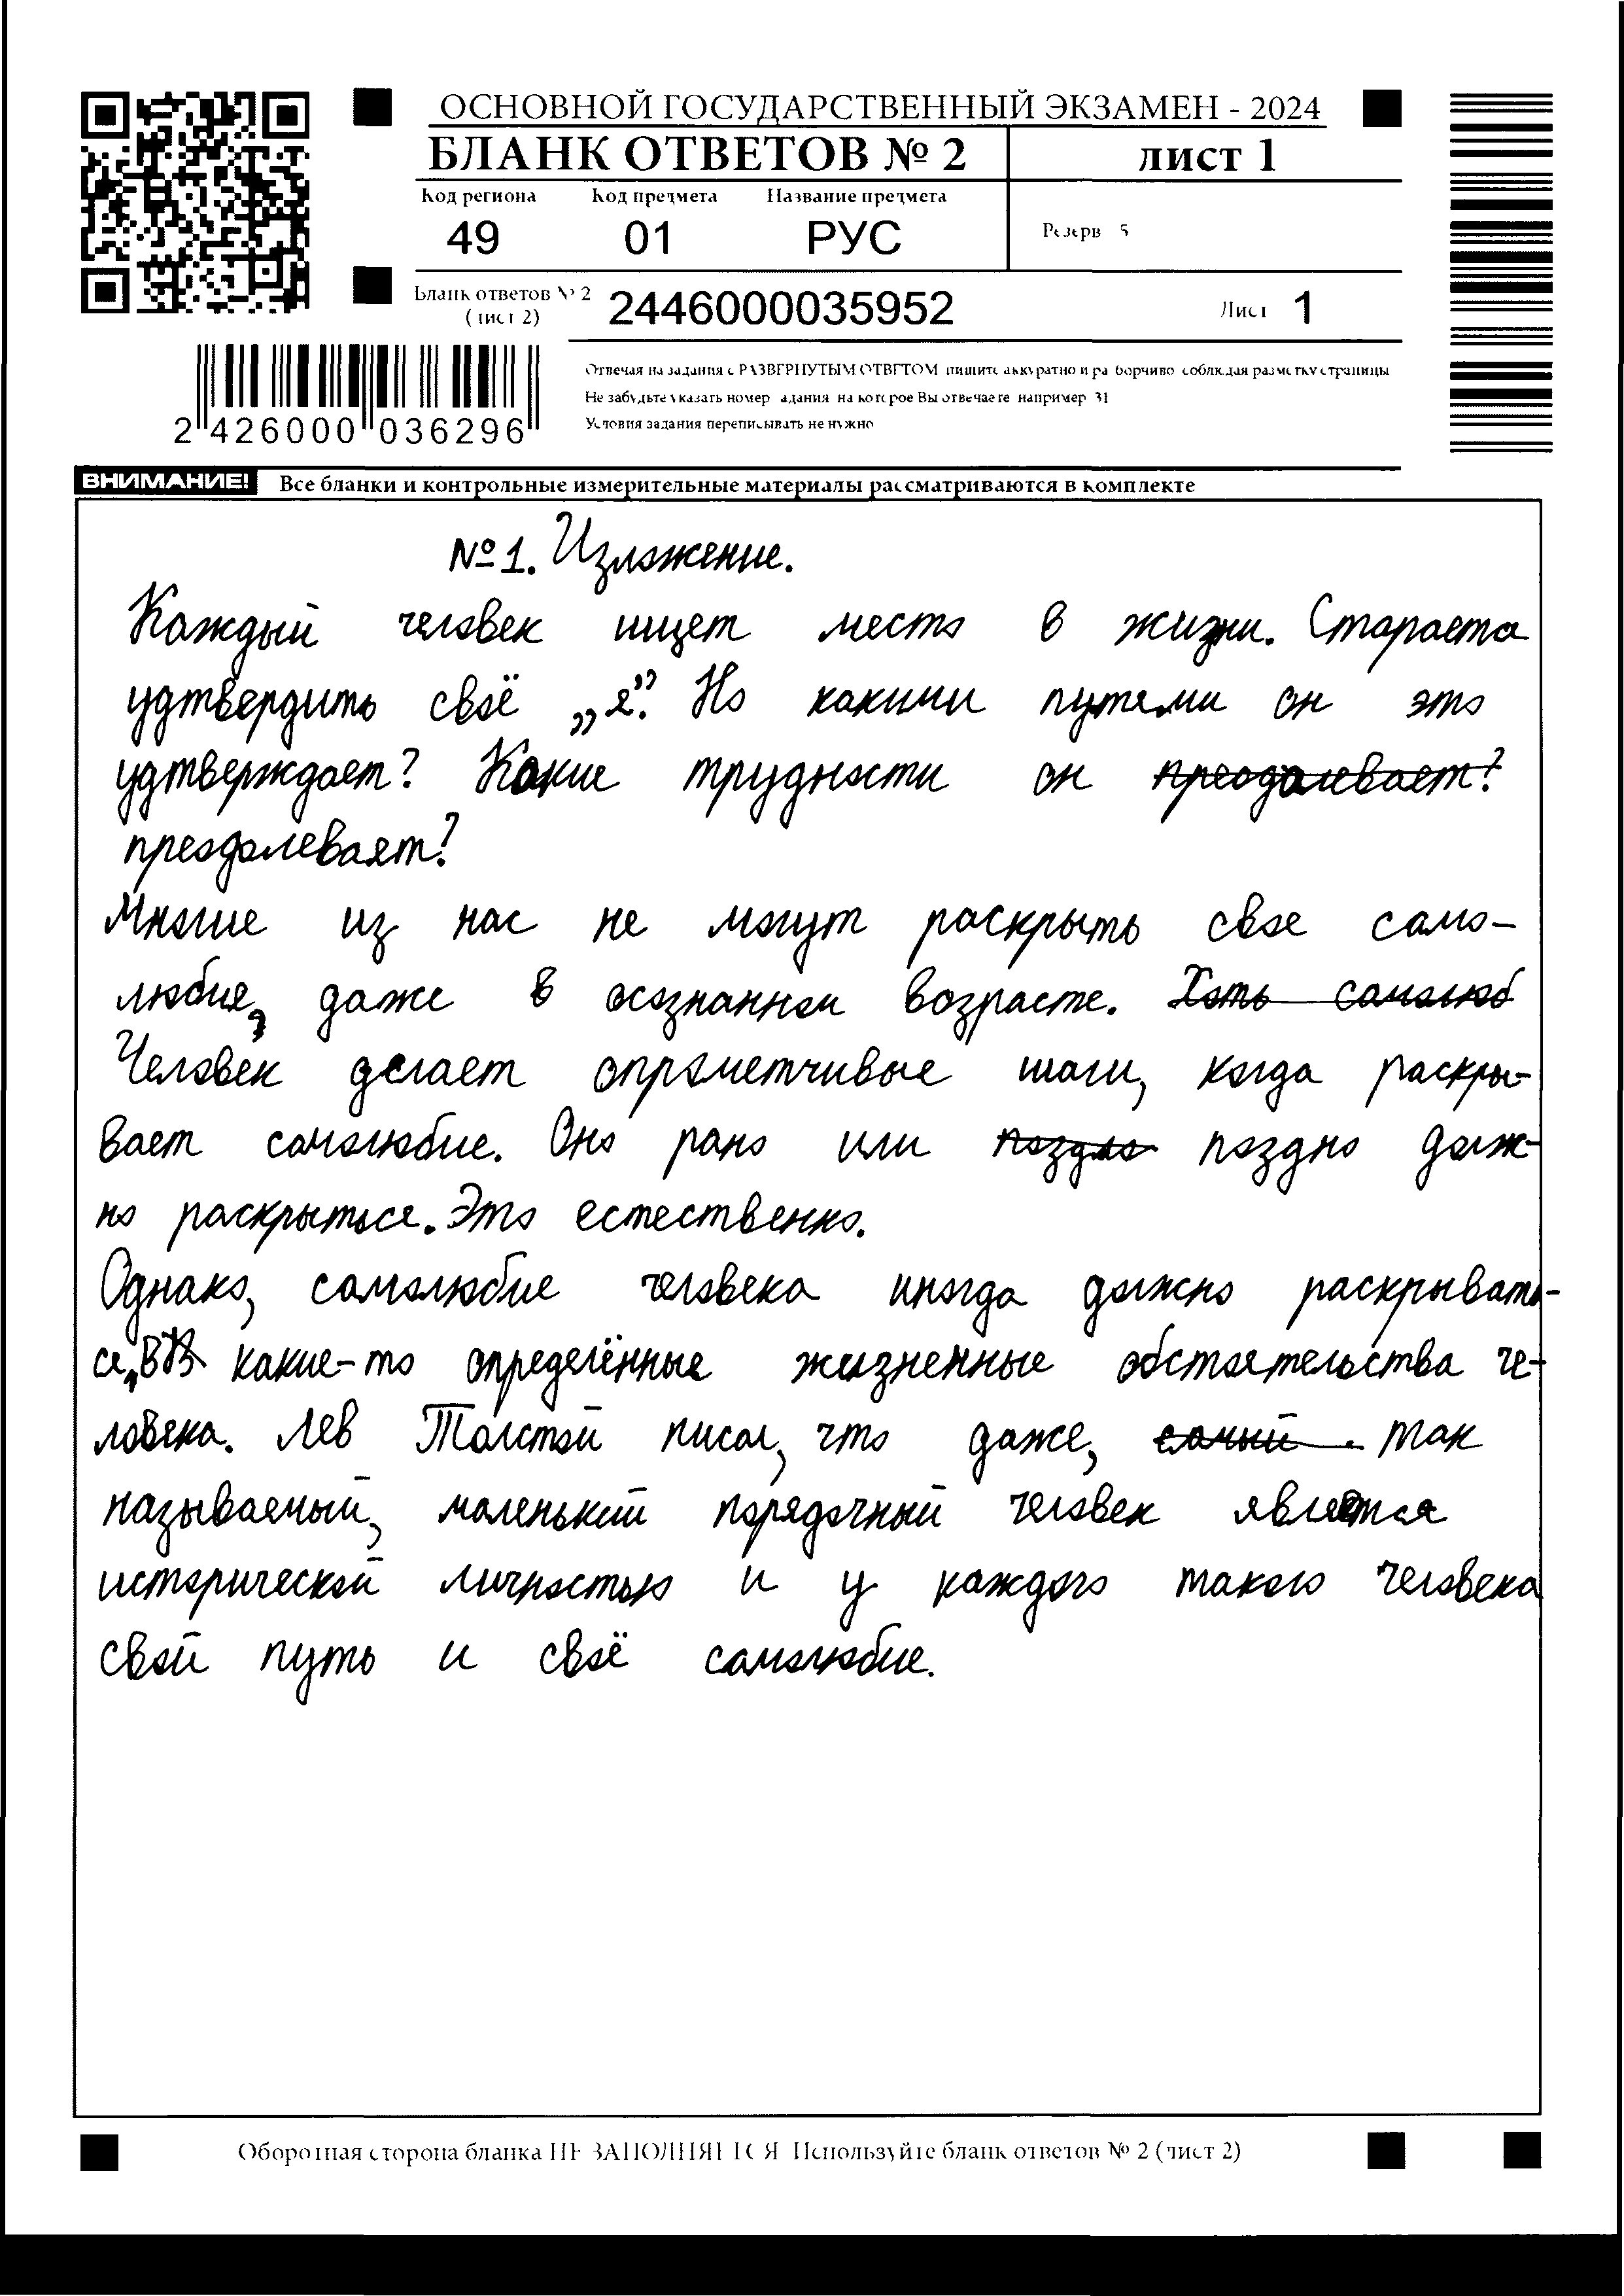 ОСНОВНОЙ ГОСУДАРСТВЕННЫЙ ЭКЗАМЕН - 2024
БЛАНК ОТВЕТОВ № 2 лист 1
Код региона Код предмета Название предмета
49 01 РУС
Резерв 5
Бланк ответов № 2
(лист 2) 2446000035952 Лист 1
Отвечая на задания с РАЗВЕРНУТЫМ ОТВЕТОМ пишите аккуратно и разборчиво соблюдая разметку страницы
Не забудьте указать номер задания на которое Вы отвечаете например 31
Условия задания переписывать не нужно
2 426000 036296
ВНИМАНИЕ! Все бланки и контрольные измерительные материалы рассматриваются в комплекте
№1. Изложение.
Каждый человек ищет место в жизни. Стараета
удтвердить своё „я”. Но какими путями он это
удтверждает? Какие трудности он преодалевает?
преодалевает?
Многие из нас не могут раскрыть свое само-
любие, даже в осознанном возрасте. Хоть самолюб
Человек делает опрометчивые шаги, когда раскры-
вает самолюбие. Оно рано или поздно поздно долж-
но раскрыться. Это естественно.
Однако, самолюбие человека иногда должно раскрывать-
ся, в какие-то определённые жизненные обстоятельства че-
ловека. Лев Толстой писал, что даже, самый так
называемый, маленький порядочный человек является
исторической личностью и у каждого такого человека
свой путь и своё самолюбие.
Оборотная сторона бланка НЕ ЗАПОЛНЯЕТСЯ Используйте бланк ответов № 2 (лист 2)